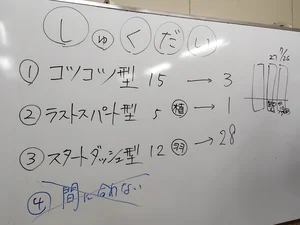 しゅくだい
① コツコツ型 15 → 3
② ラストスパート型 5 → 1
③ スタートダッシュ型 12 → 28
④ 間に合わない
27 7/26